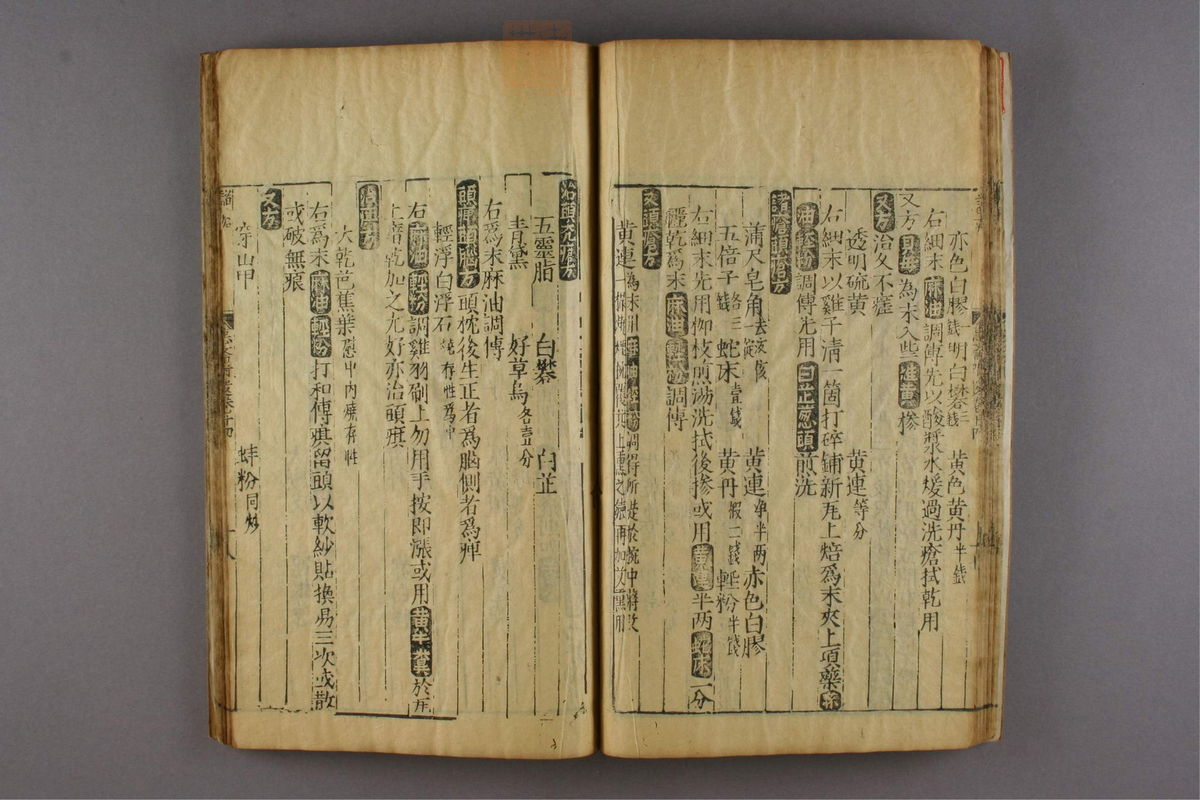 亦色白膠一錢 明白礬三錢 黃色黃丹半錢
右細末麻油調傅先以酸漿水煖過洗瘡拭乾用
又方貝母為末入些雄黃摻
又方治久不瘥
透明硫黃 黃連等分
右細末以雞子清一箇打碎鋪新瓦上焙爲末夾上項藥麻
油輕粉調傅先用白芷葱頭煎洗
諸瘡頭瘡方
蒲尺皂角一錠去皮核 黃連淨半兩 赤色白膠
五倍子各三錢 蛇床壹錢 黃丹煅二錢 輕粉半錢
右細末先用柳枝煎湯洗拭後摻或用黃連半兩蛇床一分
曬乾爲末麻油輕粉調傅
頭瘡方
黃連一爲末用麻油輕粉調得所於椀中將艾再加艾熏用
治頭禿瘡方
五靈脂 白礬 白芷
青黛 好草烏各壹分
右爲末麻油調傅
頭癉頭腦方頭枕後生正者爲腦側者爲癉
輕浮白浮石燒存性爲末
右麻油輕粉調雞羽刷上勿用手按即漲或用黃牛糞於瓦
上焙乾加之尤好亦治頭疽
大乾芭蕉葉慰中內燒存性
右爲末麻油輕粉打和傅疽留頭以軟紗貼換易三次或散
或破無痕
又方
穿山甲 蚌粉同炒
十八